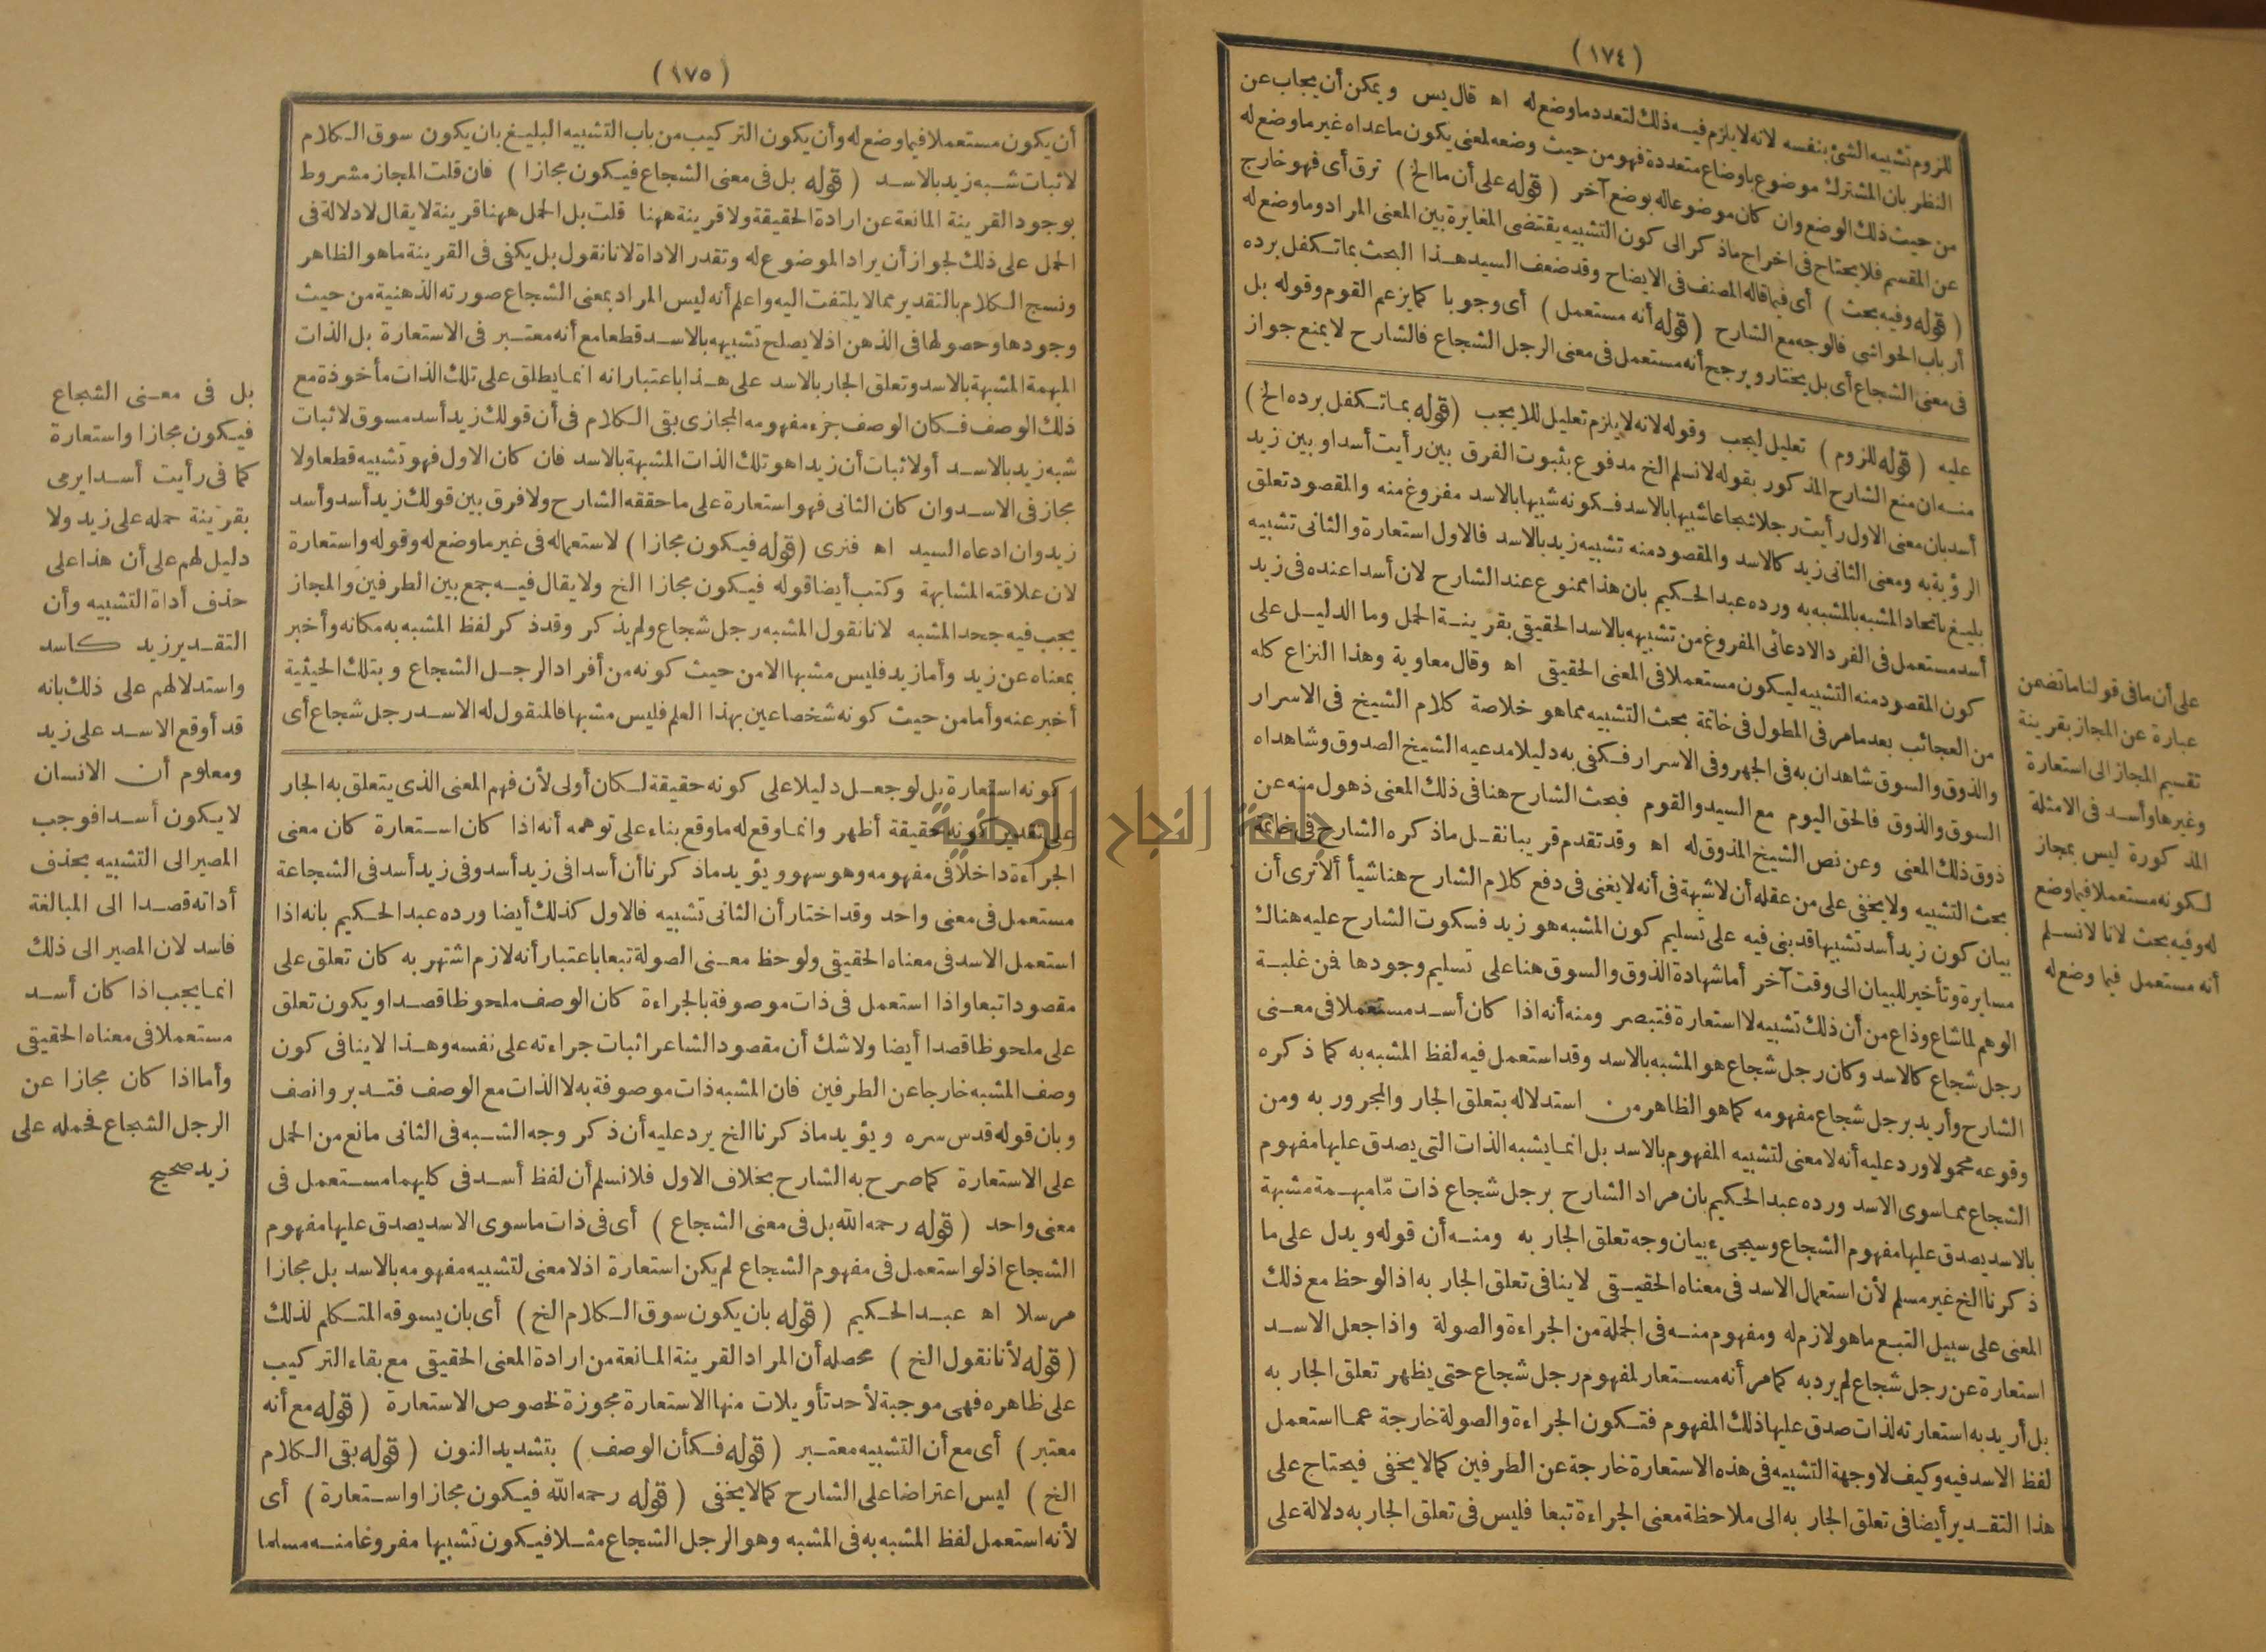 (١٧٤)
للزوم تشبيه الشئ بنفسه لانه لا يلزم فيه ذلك لتعدد ما وضع له اه قال يس ويمكن أن يجاب عن
النظر بان المشترك موضوع باوضاع متعددة فهو من حيث وضعه لمعنى يكون ما عداه غير ما وضع له
من حيث ذلك الوضع وان كان موضوعا له بوضع آخر (قوله على أن ما الخ) ترق أى فهو خارج
عن المقسم فلا يحتاج فى اخراج ماذكر الى كون التشبيه يقتضى المغايرة بين المعنى المراد وما وضع له
(قوله وفيه بحث) أى فيما قاله المصنف فى الايضاح وقد ضعف السيد هذا البحث بما تكفل برده
أرباب الحواشى فالوجه مع الشارح (قوله أنه مستعمل) أى وجوبا كما يزعم القوم وقوله بل
فى معنى الشجاع أى بل يختار ويرجح أنه مستعمل فى معنى الرجل الشجاع فالشارح لا يمنع جواز
عليه (قوله للزوم) تعليل ليجب وقوله لانه لا يلزم تعليل للا يجب (قوله بما تكفل برده الخ)
منه ان منع الشارح المذكور بقوله لانسلم الخ مدفوع بثبوت الفرق بين رأيت أسدا وبين زيد
أسد بان معنى الاول رأيت رجلا شجاعا شبيها بالاسد فكونه شبيها بالاسد مفروغ منه والمقصود تعلق
الرؤية به ومعنى الثانى زيد كالاسد والمقصود منه تشبيه زيد بالاسد فالاول استعارة والثانى تشبيه
بليغ باتحاد المشبه بالمشبه به ورده عبد الحكيم بان هذا ممنوع عند الشارح لان أسدا عنده فى زيد
أسد مستعمل فى الفرد الادعائى المفروغ من تشبيهه بالاسد الحقيقى بقرينة الحمل وما الدليل على
كون المقصود منه التشبيه ليكون مستعملا فى المعنى الحقيقى اه وقال معاوية وهذا النزاع كله
من العجائب بعد ما مر فى المطول فى خاتمة بحث التشبيه مما هو خلاصة كلام الشيخ فى الاسرار
والذوق والسوق شاهدان به فى الجهر وفى الاسرار فكفى به دليلا مدعيه الشيخ الصدوق وشاهداه
السوق والذوق فالحق اليوم مع السيد والقوم فبحث الشارح هنا فى ذلك المعنى ذهول منه عن
ذوق ذلك المعنى وعن نص الشيخ المذوق له اه وقد تقدم قريبا نقل ماذكره الشارح فى خاتمة
بحث التشبيه ولا يخفى على من عقله أن لا شبهة فى أنه لا يغنى فى دفع كلام الشارح هنا شيأ ألا ترى أن
بيان كون زيد أسد تشبيها قد بنى فيه على تسليم كون المشبه هو زيد فسكوت الشارح عليه هناك
مسايرة وتأخير للبيان الى وقت آخر أما شهادة الذوق والسوق هنا على تسليم وجودها فمن غلبة
الوهم لما شاع وذاع من أن ذلك تشبيه لا استعارة فتبصر ومنه أنه اذا كان أسد مستعملا فى معنى
رجل شجاع كالاسد وكان رجل شجاع هو المشبه بالاسد وقد استعمل فيه لفظ المشبه به كما ذكره
الشارح وأريد برجل شجاع مفهومه كما هو الظاهر من استدلاله بتعلق الجار والمجرور به ومن
وقوعه محمولا ورد عليه أنه لا معنى لتشبيه المفهوم بالاسد بل انما يشبه الذات التى يصدق عليها مفهوم
الشجاع مما سوى الاسد ورده عبد الحكيم بان مراد الشارح برجل شجاع ذات مّا مبهمة مشبهة
بالاسد يصدق عليها مفهوم الشجاع وسيجىء بيان وجه تعلق الجار به ومنه أن قوله ويدل على ما
ذكرنا الخ غير مسلم لأن استعمال الاسد فى معناه الحقيقى لا ينافى تعلق الجار به اذا لوحظ مع ذلك
المعنى على سبيل التبع ما هو لازم له ومفهوم منه فى الجملة من الجراءة والصولة واذا جعل الاسد
استعارة عن رجل شجاع لم يرد به كما مر أنه مستعار لمفهوم رجل شجاع حتى يظهر تعلق الجار به
بل أريد به استعارته لذات صدق عليها ذلك المفهوم فتكون الجراءة والصولة خارجة عما استعمل
لفظ الاسد فيه وكيف لا ووجهة التشبيه فى هذه الاستعارة خارجة عن الطرفين كما لا يخفى فيحتاج على
هذا التقدير أيضا فى تعلق الجار به الى ملاحظة معنى الجراءة تبعا فليس فى تعلق الجار به دلالة على
على أن ما فى قولنا ما تضمن
عبارة عن المجاز بقرينة
تقسيم المجاز الى استعارة
وغيرها وأسد فى الامثلة
المذكورة ليس بمجاز
لكونه مستعملا فيما وضع
له وفيه بحث لانا لانسلم
أنه مستعمل فيما وضع له
(١٧٥)
أن يكون مستعملا فيما وضع له وأن يكون التركيب من باب التشبيه البليغ بان يكون سوق الكلام
لاثبات شبه زيد بالاسد (قوله بل فى معنى الشجاع فيكون مجازا) فان قلت المجاز مشروط
بوجود القرينة المانعة عن ارادة الحقيقة ولا قرينة ههنا قلت بل الحمل ههنا قرينة لا يقال لا دلالة فى
الحمل على ذلك لجواز أن يراد الموضوع له وتقدر الاداة لانا نقول بل يكفى فى القرينة ما هو الظاهر
ونسج الكلام بالتقدير مما لا يلتفت اليه واعلم أنه ليس المراد بمعنى الشجاع صورته الذهنية من حيث
وجودها وحصولها فى الذهن اذ لا يصلح تشبيهه بالاسد قطعا مع أنه معتبر فى الاستعارة بل الذات
المبهمة المشبهة بالاسد وتعلق الجار بالاسد على هذا باعتبار انه انما يطلق على تلك الذات مأخوذة مع
ذلك الوصف فكان الوصف جزء مفهومه المجازى بقى الكلام فى أن قولك زيد أسد مسوق لاثبات
شبه زيد بالاسد أو لاثبات أن زيدا هو تلك الذات المشبهة بالاسد فان كان الاول فهو تشبيه قطعا ولا
مجاز فى الاسد وان كان الثانى فهو استعارة على ما حققه الشارح ولا فرق بين قولك زيد أسد وأسد
زيد وان ادعاه السيد اه فنرى (قوله فيكون مجازا) لاستعماله فى غير ما وضع له وقوله واستعارة
لان علاقته المشابهة وكتب أيضا قوله فيكون مجازا الخ ولا يقال فيه جمع بين الطرفين والمجاز
يجب فيه جحد المشبه لانا نقول المشبه رجل شجاع ولم يذكر وقد ذكر لفظ المشبه به مكانه وأخبر
بمعناه عن زيد وأما زيد فليس مشبها الا من حيث كونه من أفراد الرجل الشجاع وبتلك الحيثية
أخبر عنه وأما من حيث كونه شخصا عين بهذا العلم فليس مشبها فالمنقول له الاسد رجل شجاع أى
كونه استعارة بل لو جعل دليلا على كونه حقيقة لكان أولى لأن فهم المعنى الذى يتعلق به الجار
على تقدير كونه حقيقة أظهر وانما وقع له ما وقع بناء على توهمه أنه اذا كان استعارة كان معنى
الجراءة داخلا فى مفهومه وهو سهو ويؤيد ماذكرنا أن أسدا فى زيد أسد وفى زيد أسد فى الشجاعة
مستعمل فى معنى واحد وقد اختار أن الثانى تشبيه فالاول كذلك أيضا ورده عبد الحكيم بانه اذا
استعمل الاسد فى معناه الحقيقى ولوحظ معنى الصولة تبعا باعتبار أنه لازم اشتهر به كان تعلق على
مقصودا تبعا واذا استعمل فى ذات موصوفة بالجراءة كان الوصف ملحوظا قصدا ويكون تعلق
على ملحوظا قصدا أيضا ولا شك أن مقصود الشاعر اثبات جراءته على نفسه وهذا لا ينافى كون
وصف المشبه خارجا عن الطرفين فان المشبه ذات موصوفة به لا الذات مع الوصف فتدبر وانصف
وبان قوله قدس سره ويؤيد ماذكرنا الخ يرد عليه أن ذكر وجه الشبه فى الثانى مانع من الحمل
على الاستعارة كما صرح به الشارح بخلاف الاول فلا نسلم أن لفظ أسد فى كليهما مستعمل فى
معنى واحد (قوله رحمه الله بل فى معنى الشجاع) أى فى ذات ما سوى الاسد يصدق عليها مفهوم
الشجاع اذ لو استعمل فى مفهوم الشجاع لم يكن استعارة اذ لا معنى لتشبيه مفهومه بالاسد بل مجازا
مرسلا اه عبد الحكيم (قوله بان يكون سوق الكلام الخ) أى بان يسوقه المتكلم لذلك
(قوله لأنا نقول الخ) محصله أن المراد القرينة المانعة من ارادة المعنى الحقيقى مع بقاء التركيب
على ظاهره فهى موجبة لأحد تأويلات منها الاستعارة مجوزة لخصوص الاستعارة (قوله مع أنه
معتبر) أى مع أن التشبيه معتبر (قوله فكأن الوصف) بتشديد النون (قوله بقى الكلام
الخ) ليس اعتراضا على الشارح كما لا يخفى (قوله رحمه الله فيكون مجازا واستعارة) أى
لأنه استعمل لفظ المشبه به فى المشبه وهو الرجل الشجاع مثلا فيكون تشبيها مفروغا منه مسلما
بل فى معنى الشجاع
فيكون مجازا واستعارة
كما فى رأيت أسدا يرمى
بقرينة حمله على زيد ولا
دليل لهم على أن هذا على
حذف أداة التشبيه وأن
التقدير زيد كاسد
واستدلالهم على ذلك بانه
قد أوقع الاسد على زيد
ومعلوم أن الانسان
لا يكون أسدا فوجب
المصير الى التشبيه بحذف
أداته قصدا الى المبالغة
فاسد لان المصير الى ذلك
انما يجب اذا كان أسد
مستعملا فى معناه الحقيقى
وأما اذا كان مجازا عن
الرجل الشجاع فحمله على
زيد صحيح